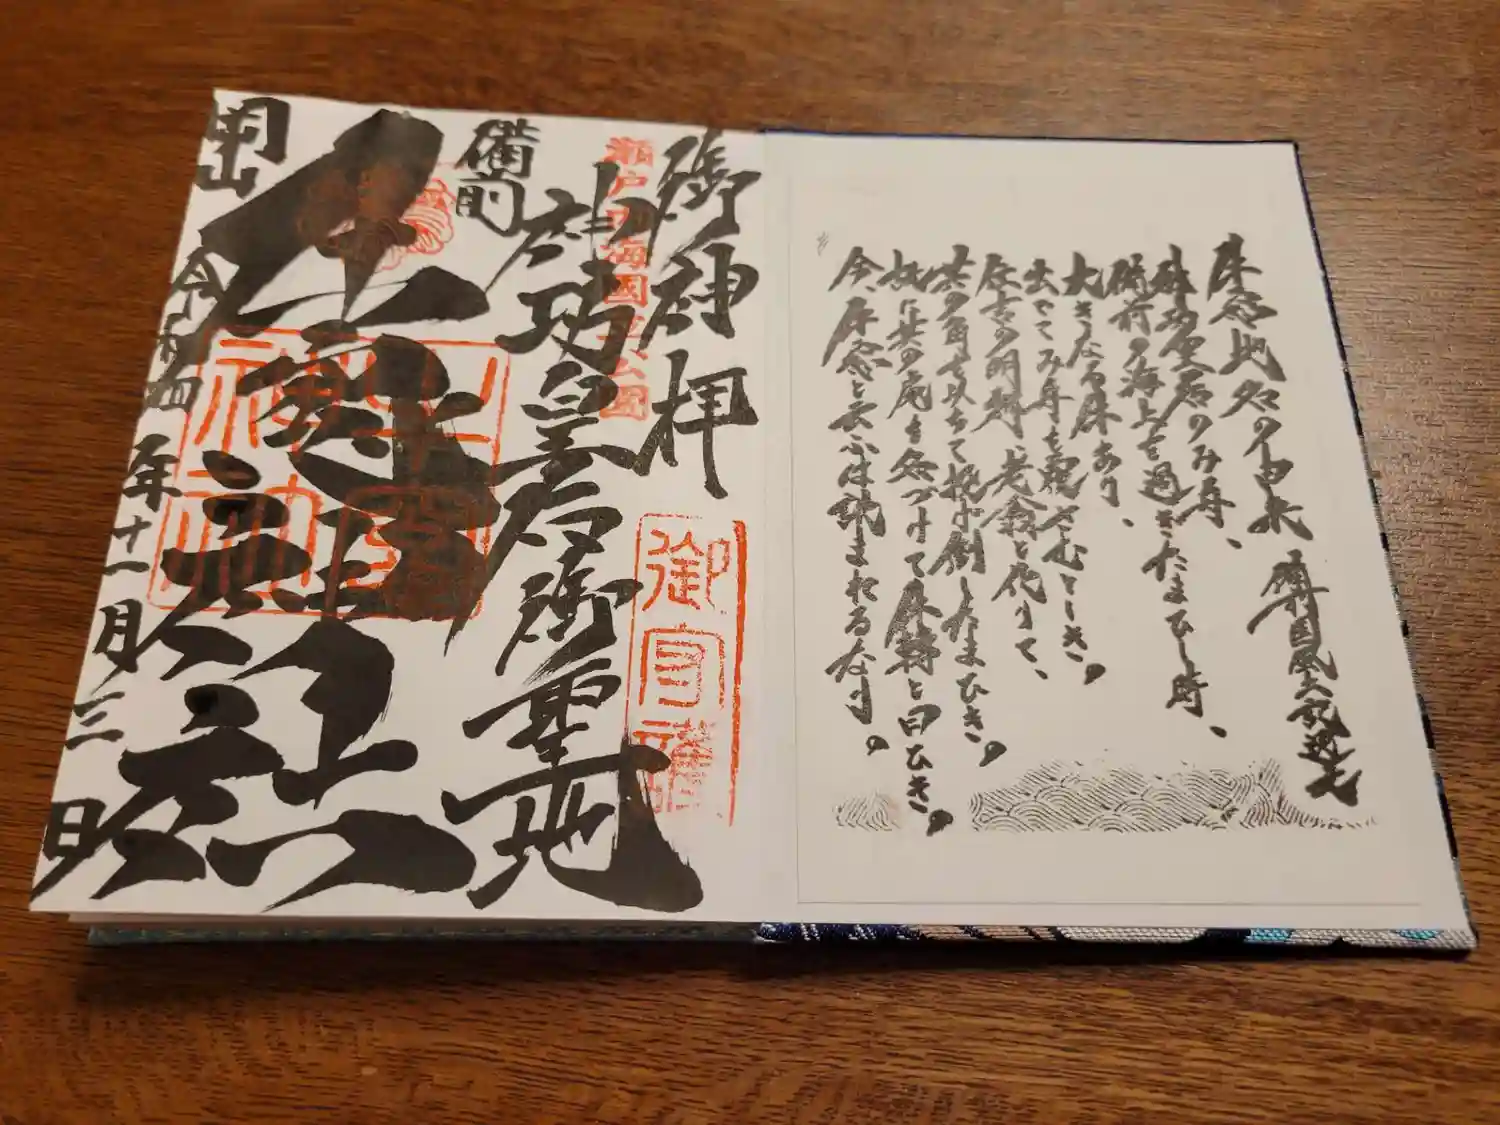 牛窓地名の由来 備前国風土記逸文
神功皇后のみ舟、
備前の海上を過ぎたまひし時、
大きなる牛あり、
出でてみ舟を覆さむとしき。
住吉の明神 老翁と化りて、
其の角を以ちて投げ倒したまひき。
故に其の処を名づけて牛轉と曰ひき。
今、牛窓と云ふは訛まれるなり。
御神拝
瀬戸内海國立公園
神功皇后御聖地
備前
牛窓神社
岡山
令和四年十一月三日